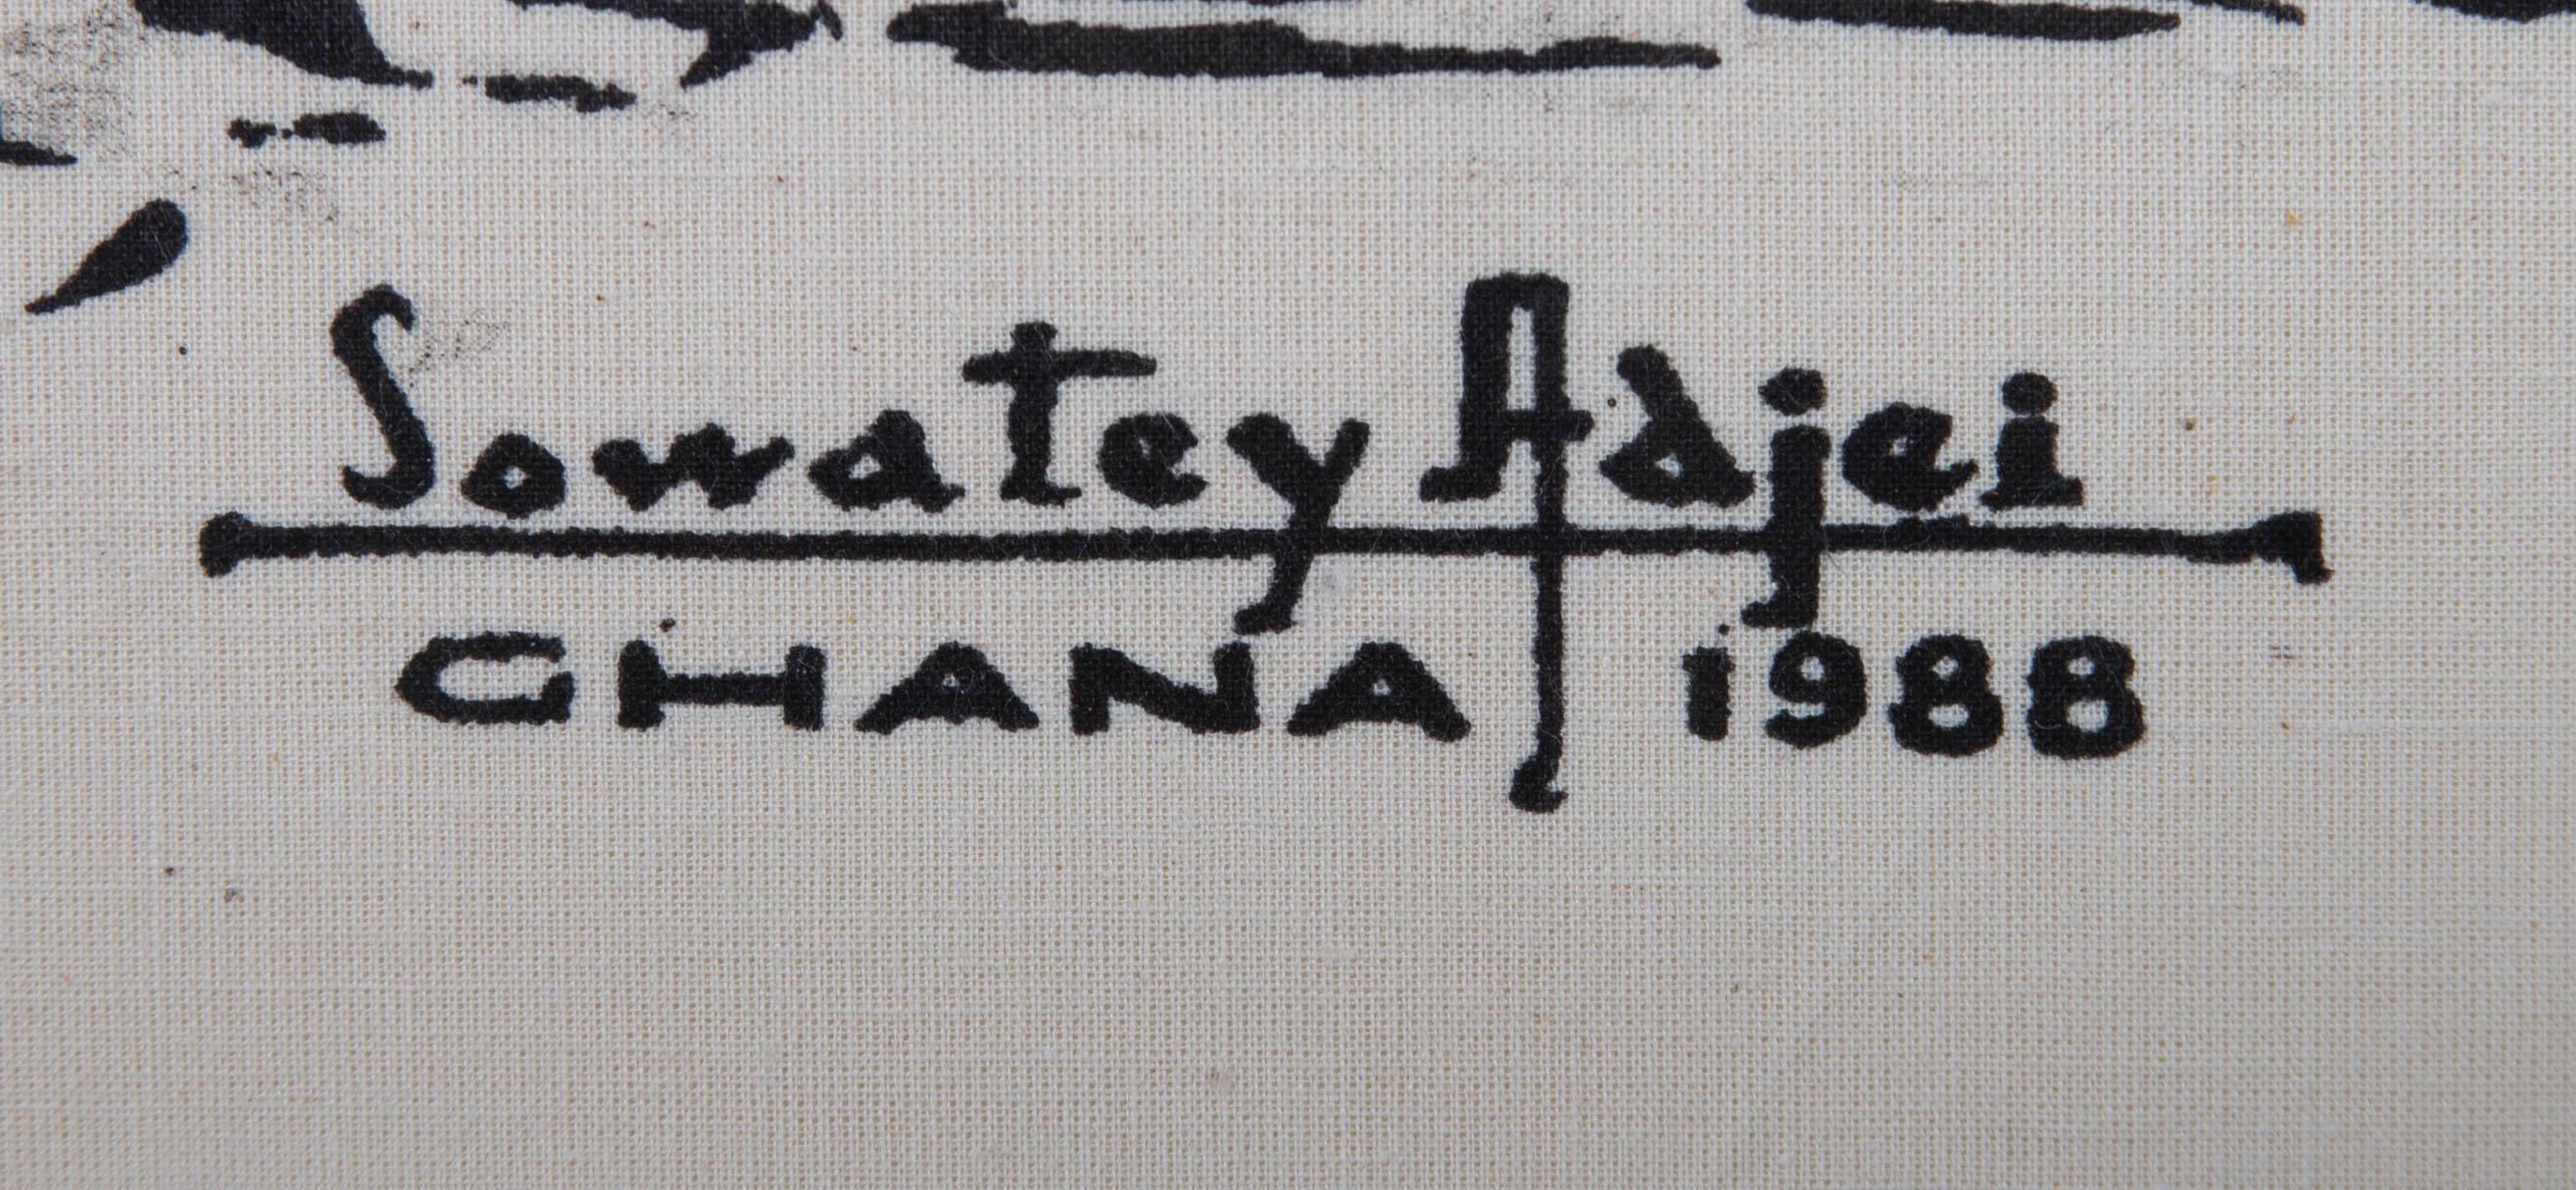 Sowatey Adjei
GHANA 1988